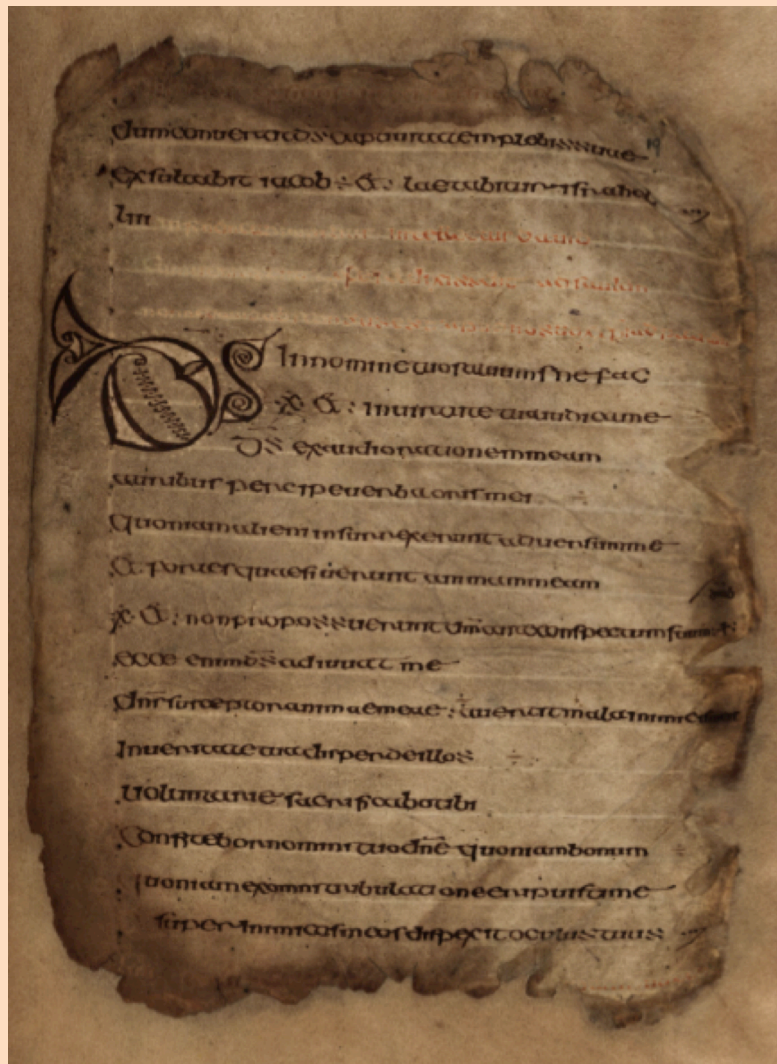 Cum conuerterit d̄s captiuitatem plebis suae
exsaltabit iacob ÷ et : laetabitur israhel
In
D̄S In nomine tuo saluum me fac
※ et : in uirtute tua iudica me
d̄s exaudi orationem meam
auribus percipe uerba oris mei
Quoniam alieni insurrexerunt aduersum me
et fortes quaesierunt animam meam
※ et : non propossuerunt d̄m ante conspectum suum
ecce enim d̄s adiuuat me
d̄ns susceptor animae meae : auertit mala inimicis
In ueritate tua disperde illos
uoluntarie sacrificabo tibi
Confitebor nomini tuo d̄ne quoniam bonum ÷
quoniam ex omni tribulatione eripuisti me
super inimicos meos dispexit oculus tuus